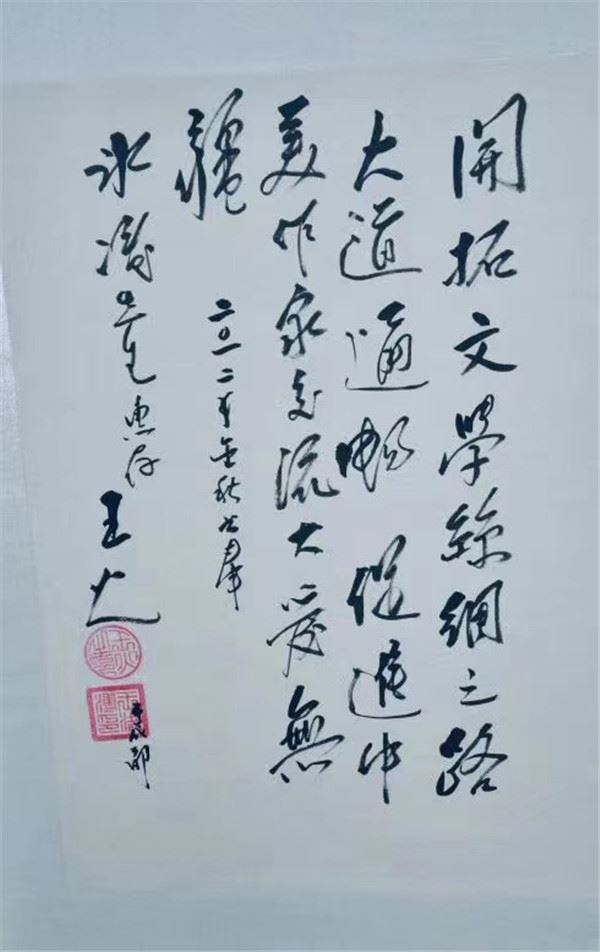 開拓文學絲綢之路
大道通暢 促進中
美作家交流大愛無
疆
二〇一二年金秋书奉
冰凌先生惠存
王火
于成都